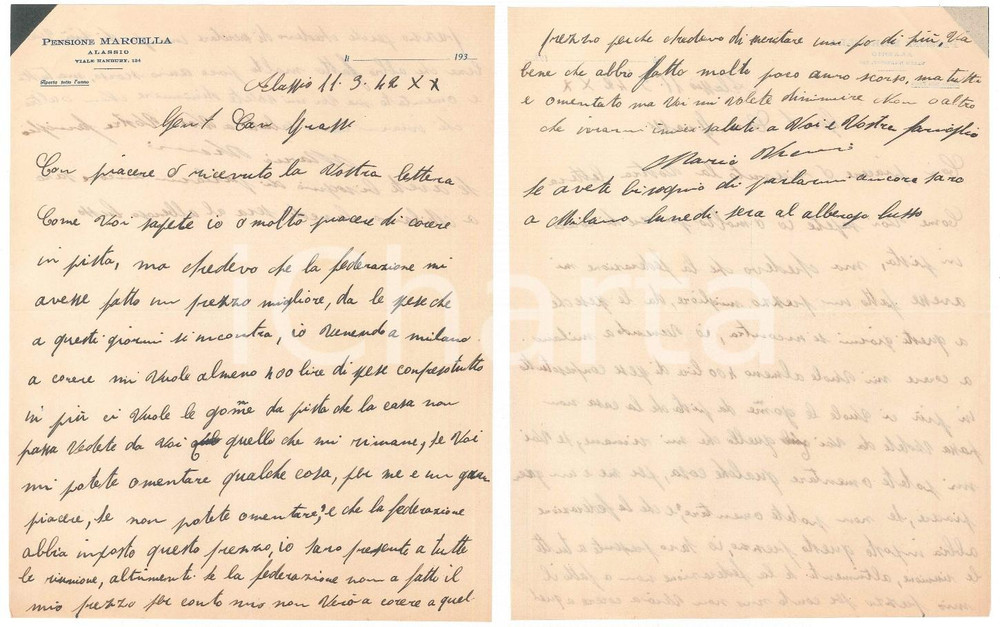 PENSIONE MARCELLA
ALASSIO
VIALE HANBURY, 124
Aperta tutto l'anno
li 193
Alassio 11.3.42 XX
Gent Cav
Con piacere ò ricevuto la Vostra lettera
Come Voi sapete io o molto piacere di corere
in pista, ma chedevo che la federazione mi
avesse fatto un prezzo migliore, da le spese che
a questi giorni si incontra, io venendo a milano
a corere mi vuole almeno 400 lire di spese compreso tutto
in più ci vuole le gome da pista che la casa non
passa Vedete da voi quello che mi rimane, se Voi
mi potete omentare qualche cosa, per me e un gran
piacere, se non potete omentare, e che la federazione
abbia imposto questo prezzo, io saro presente a tutte
le riunione, altrimenti se la federazione non a fatto il
mio prezzo per conto mio non verò a corere a quel
prezzo perche chedevo di meritare un po di più, Va
bene che abbio fatto molto poco anno scorso, ma tutti
e omentato ma Voi mi volete diminuire Non o altro
che inviarvi saluti a Voi e Vostra famiglia
Mario
se avete bisogno di parlarmi ancora saro
a Milano lunedi sera al albergo lusso
iCharta